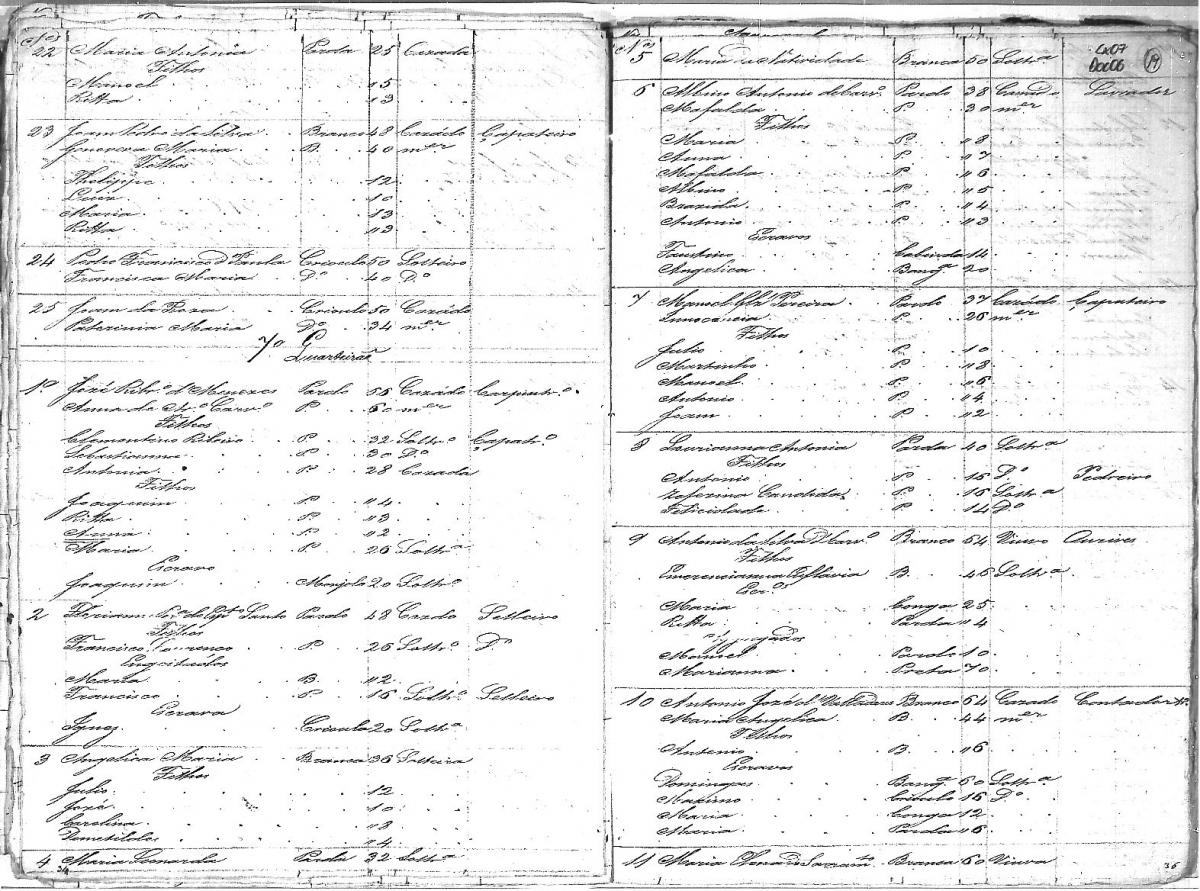 Nos
22 Maria Antonia Parda 25 Cazada
Filhos
Manoel 5
Ritta 3
23 Joam Pedro da Silva Branco 48 Cazádo Çapateiro
Genoveva Maria B. 40 mer
Filhos
Phelippe 12
Luiz 10
Maria 13
Ritta 3
24 Pedro Francisco d Paula Crioulo 50 Solteiro
Francisca Maria Do 40 Do
25 Joam da Roza Crioulo 50 Cazádo
Maria Do 34 mer
7o Quarteirão
1o Jozé Ribro d'Menezes Pardo 56 Cazádo Carpintro
Anna da Carvo P. 60 mer
Filhos
Clementino Ribeiro P. 32 Soltro Çapatro
Sebastianna P. 30 Do
Antonia P. 28 Cazada
Filhos
Joaquim P. 4
Ritta P. 3
Anna P. 2
Maria P. 26 Soltra
Escravo
Joaquim Monjolo 20 Soltro
2 Floriano do Santo Pardo 48 Cazdo Selleiro
Filhos
Francisco Lourenco P. 26 Soltro Do
Engeitados
Maria B. 2
Francisco P. 16 Soltro Selleiro
Escrava
Ignez Crioula 20 Soltra
3 Angelica Maria Branca 36 Solteira
Filhos
Julio 12
Jozé 10
Carolina 8
4
4 Maria Leonarda Parda 32 Soltra
Nos
5 Maria da Natividade Branca 50 Soltra
Cx07
Doc06
19
6 Albino Antonio de Carvo Pardo 38 Cazado Lavrador
Mafalda P. 30 mer
Filhos
Maria P. 8
Anna P. 7
Mafalda P. 6
Albino P. 5
Brazida P. 4
Antonio P. 3
Escravos
Faustino Cabinda 14
Angelica Bang 20
7 Manoel Pereira Pardo 37 Cazádo Çapateiro
Innocencia P. 26 mer
Filhos
Julio P. 10
Martinho P. 8
Manoel P. 6
Antonio P. 4
Joam P. 2
8 Laurianna Antonia Parda 40 Soltra
Filhos
Antonio P. 16 Do Pedreiro
Zeferina Candida P. 15 Soltra
Felicidade P. 14 Do
9 Antonio da Silva Branco 64 Viuvo Aurives
Filhos
Emerencianna Flavia B. 46 Soltra
Escros
Maria Conga 25
Ritta Parda 4
Aggregados
Manoel Pardo 10
Marianna Preta 70
10 Antonio Jozé Valladares Branco 64 Cazado Contador
Maria Angelica B. 44 mer
Filhos
Antonio B. 6
Escravos
Domingos Bang 60 Soltra
Maximo Crioulo 16 Do
Maria Conga 12
Maria Parda 6
11 Maria Branca 60 Viuva
36